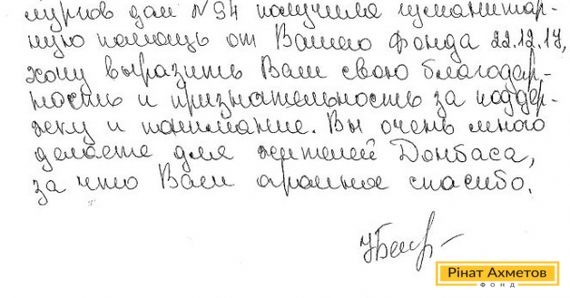 дом №94 получила гуманитар-
ную помощь от Вашего Фонда 22.12.17,
хочу выразить Вам свою благодар-
ность и признательность за поддер-
жку и понимание. Вы очень много
делаете для жителей Донбаса,
за что Вам огромное спасибо.
Рінат Ахметов
ФОНД